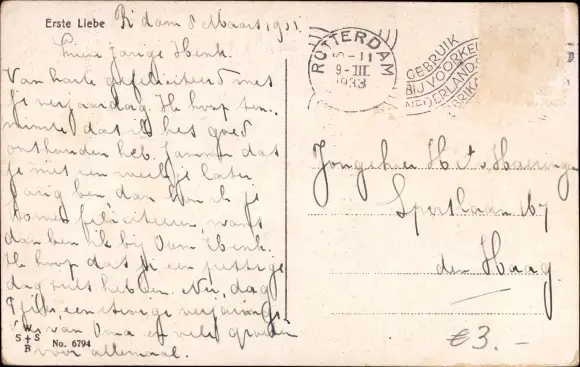 Erste Liebe
R'dam 8 Maart 1933.
Lieve jarige Henk.
Van harte gefeliciteerd met
je verjaardag. Ik hoop ten-
minste dat ik het goed
onthouden heb. Jammer dat
je niet een weekje later
jarig ben dan kon ik je
komen feliciteeren, want
dan ben ik bij Oom Henk.
Ik hoop dat je een prettige
dag zult hebben. Nu, dag
een stevige verjaarings
van Oma en vele groeten
voor allemaal.
W S S B
No. 6794
ROTTERDAM
9-III
1933
GEBRUIK
BIJ VOORKEUR
NEDERLANDSCH
Jongeheer H.
Sportlaan 167
den Haag
€3.-